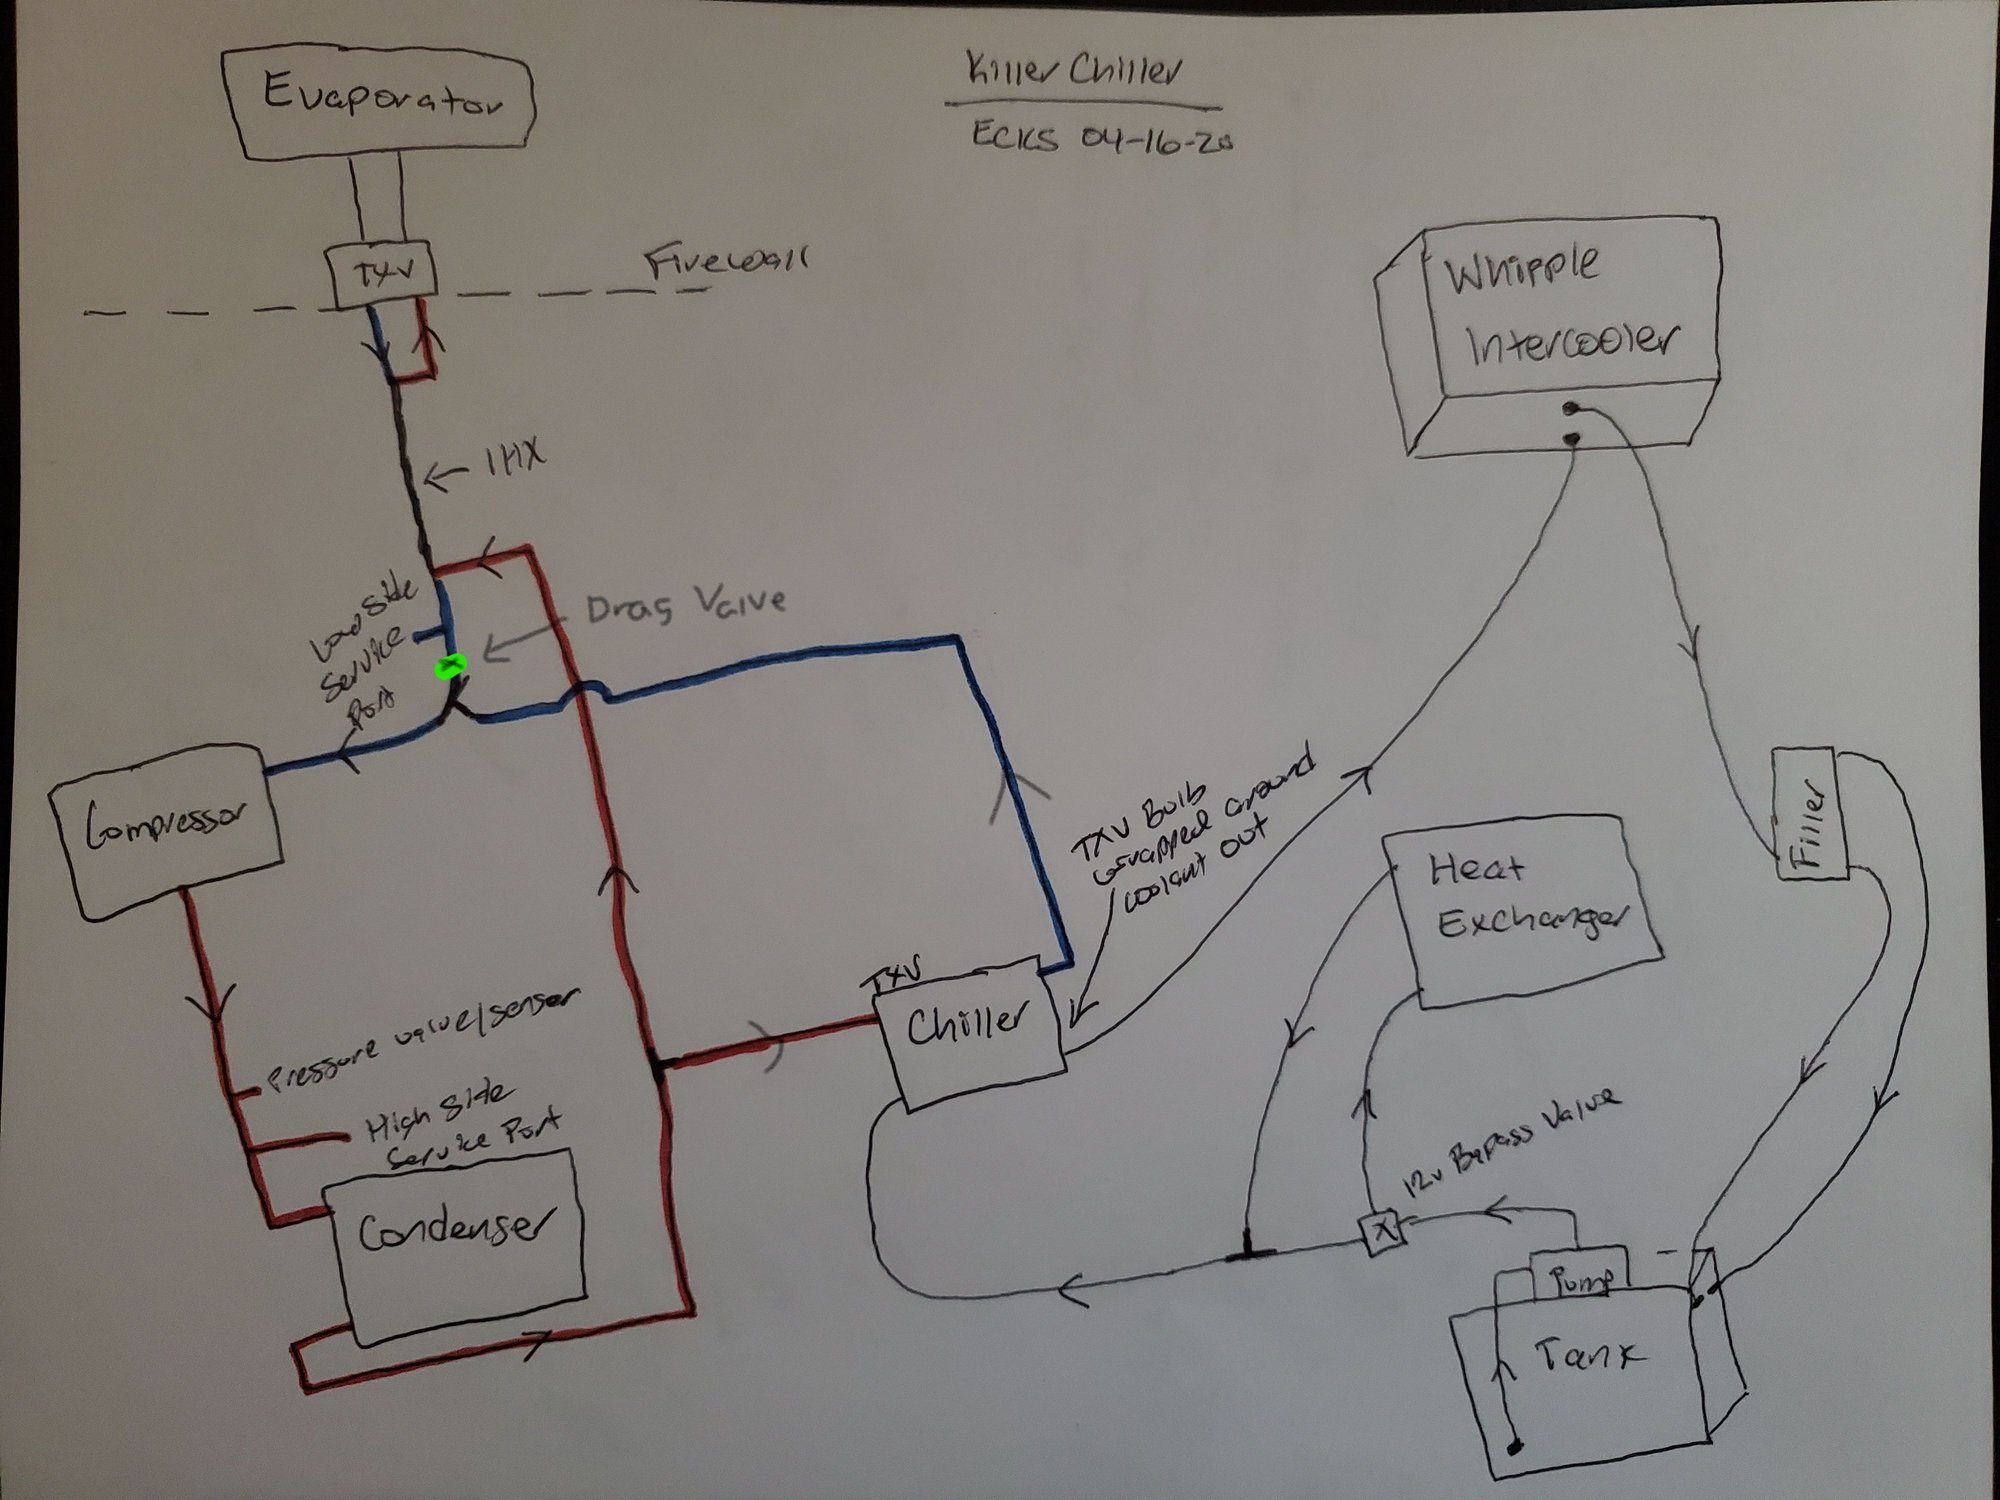 Killer Chiller
ECKS 04-16-20
Evaporator
TXV
Firewall
IHX
Whipple
Intercooler
Low Side
Service
Port
Drag Valve
Compressor
TXV Bulb
wrapped around
coolant out
Filler
Heat
Exchanger
TXV
Chiller
Pressure valve/senser
High Side
Service Port
Condenser
12v Bypass Valve
X
Pump
Tank